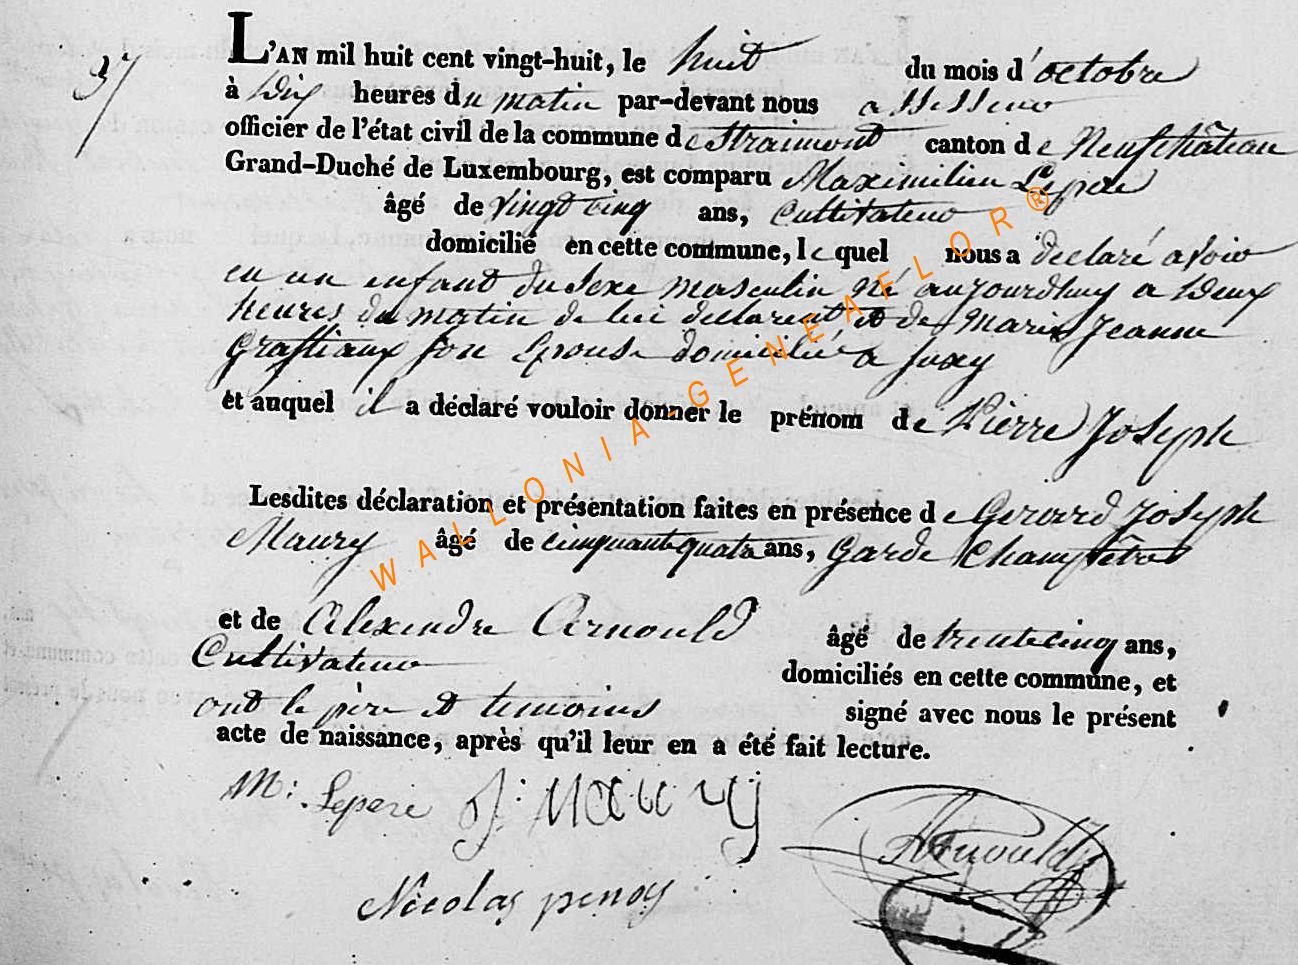 37
L'AN mil huit cent vingt-huit, le huit du mois d'octobre
à Dix heures du matin par-devant nous assesseur
officier de l'état civil de la commune de Straimont canton de Neufchâteau
Grand-Duché de Luxembourg, est comparu Maximilien Lepere
âgé de vingt cinq ans, Cultivateur
domicilié en cette commune, lequel nous a déclaré avoir
eu un enfant du sexe masculin né aujourdhuy a Deux
heures du matin de lui declarant et de Marie Jeanne
Graftiaux son Epouse domiciliée a Suxy
et auquel il a déclaré vouloir donner le prénom de Pierre Joseph
Lesdites déclaration et présentation faites en présence de Gerard Joseph
Maury âgé de cinquante quatre ans, Garde Champêtre
et de Alexendre Arnould âgé de trente cinq ans,
Cultivateur domiciliés en cette commune, et
ont le père et temoins signé avec nous le présent
acte de naissance, après qu'il leur en a été fait lecture.
M: Lepere J: Maury
Arnould
Nicolas penoy
WALLONIA-GENEAFLOR®